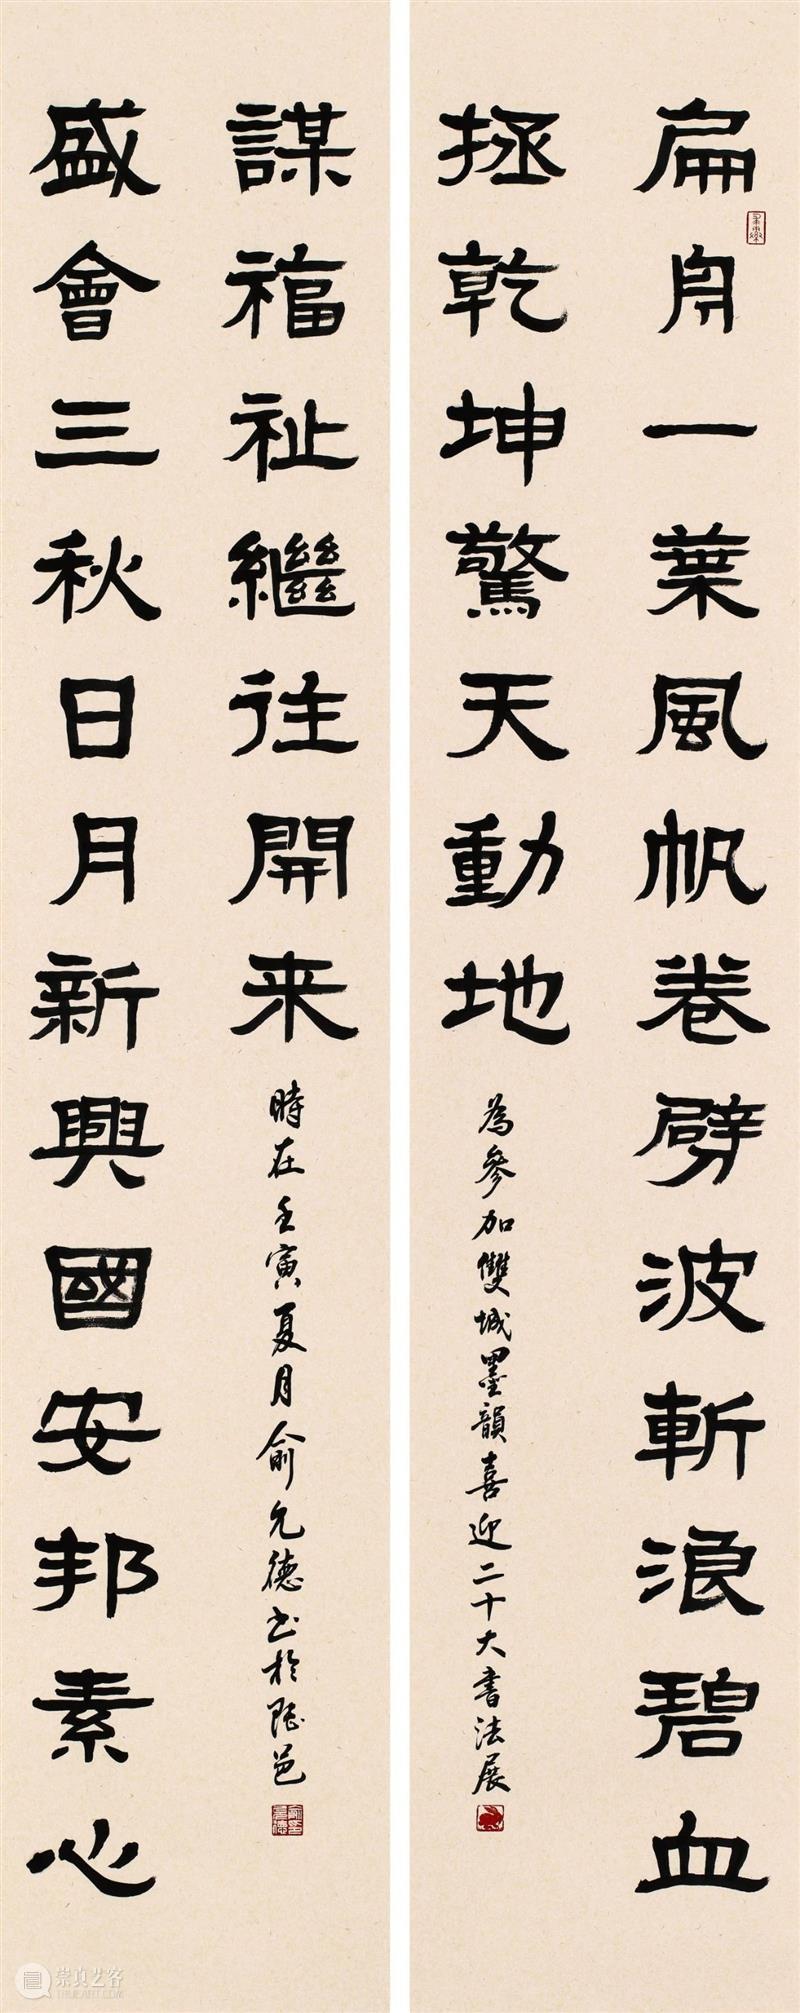 扁舟一葉風帆卷劈波斬浪碧血
拯乾坤驚天動地
為參加雙城墨韻喜迎二十大書法展
盛會三秋日月新興國安邦素心
謀福祉繼往開来
時在壬寅夏月俞允德书於邑
崇真艺客